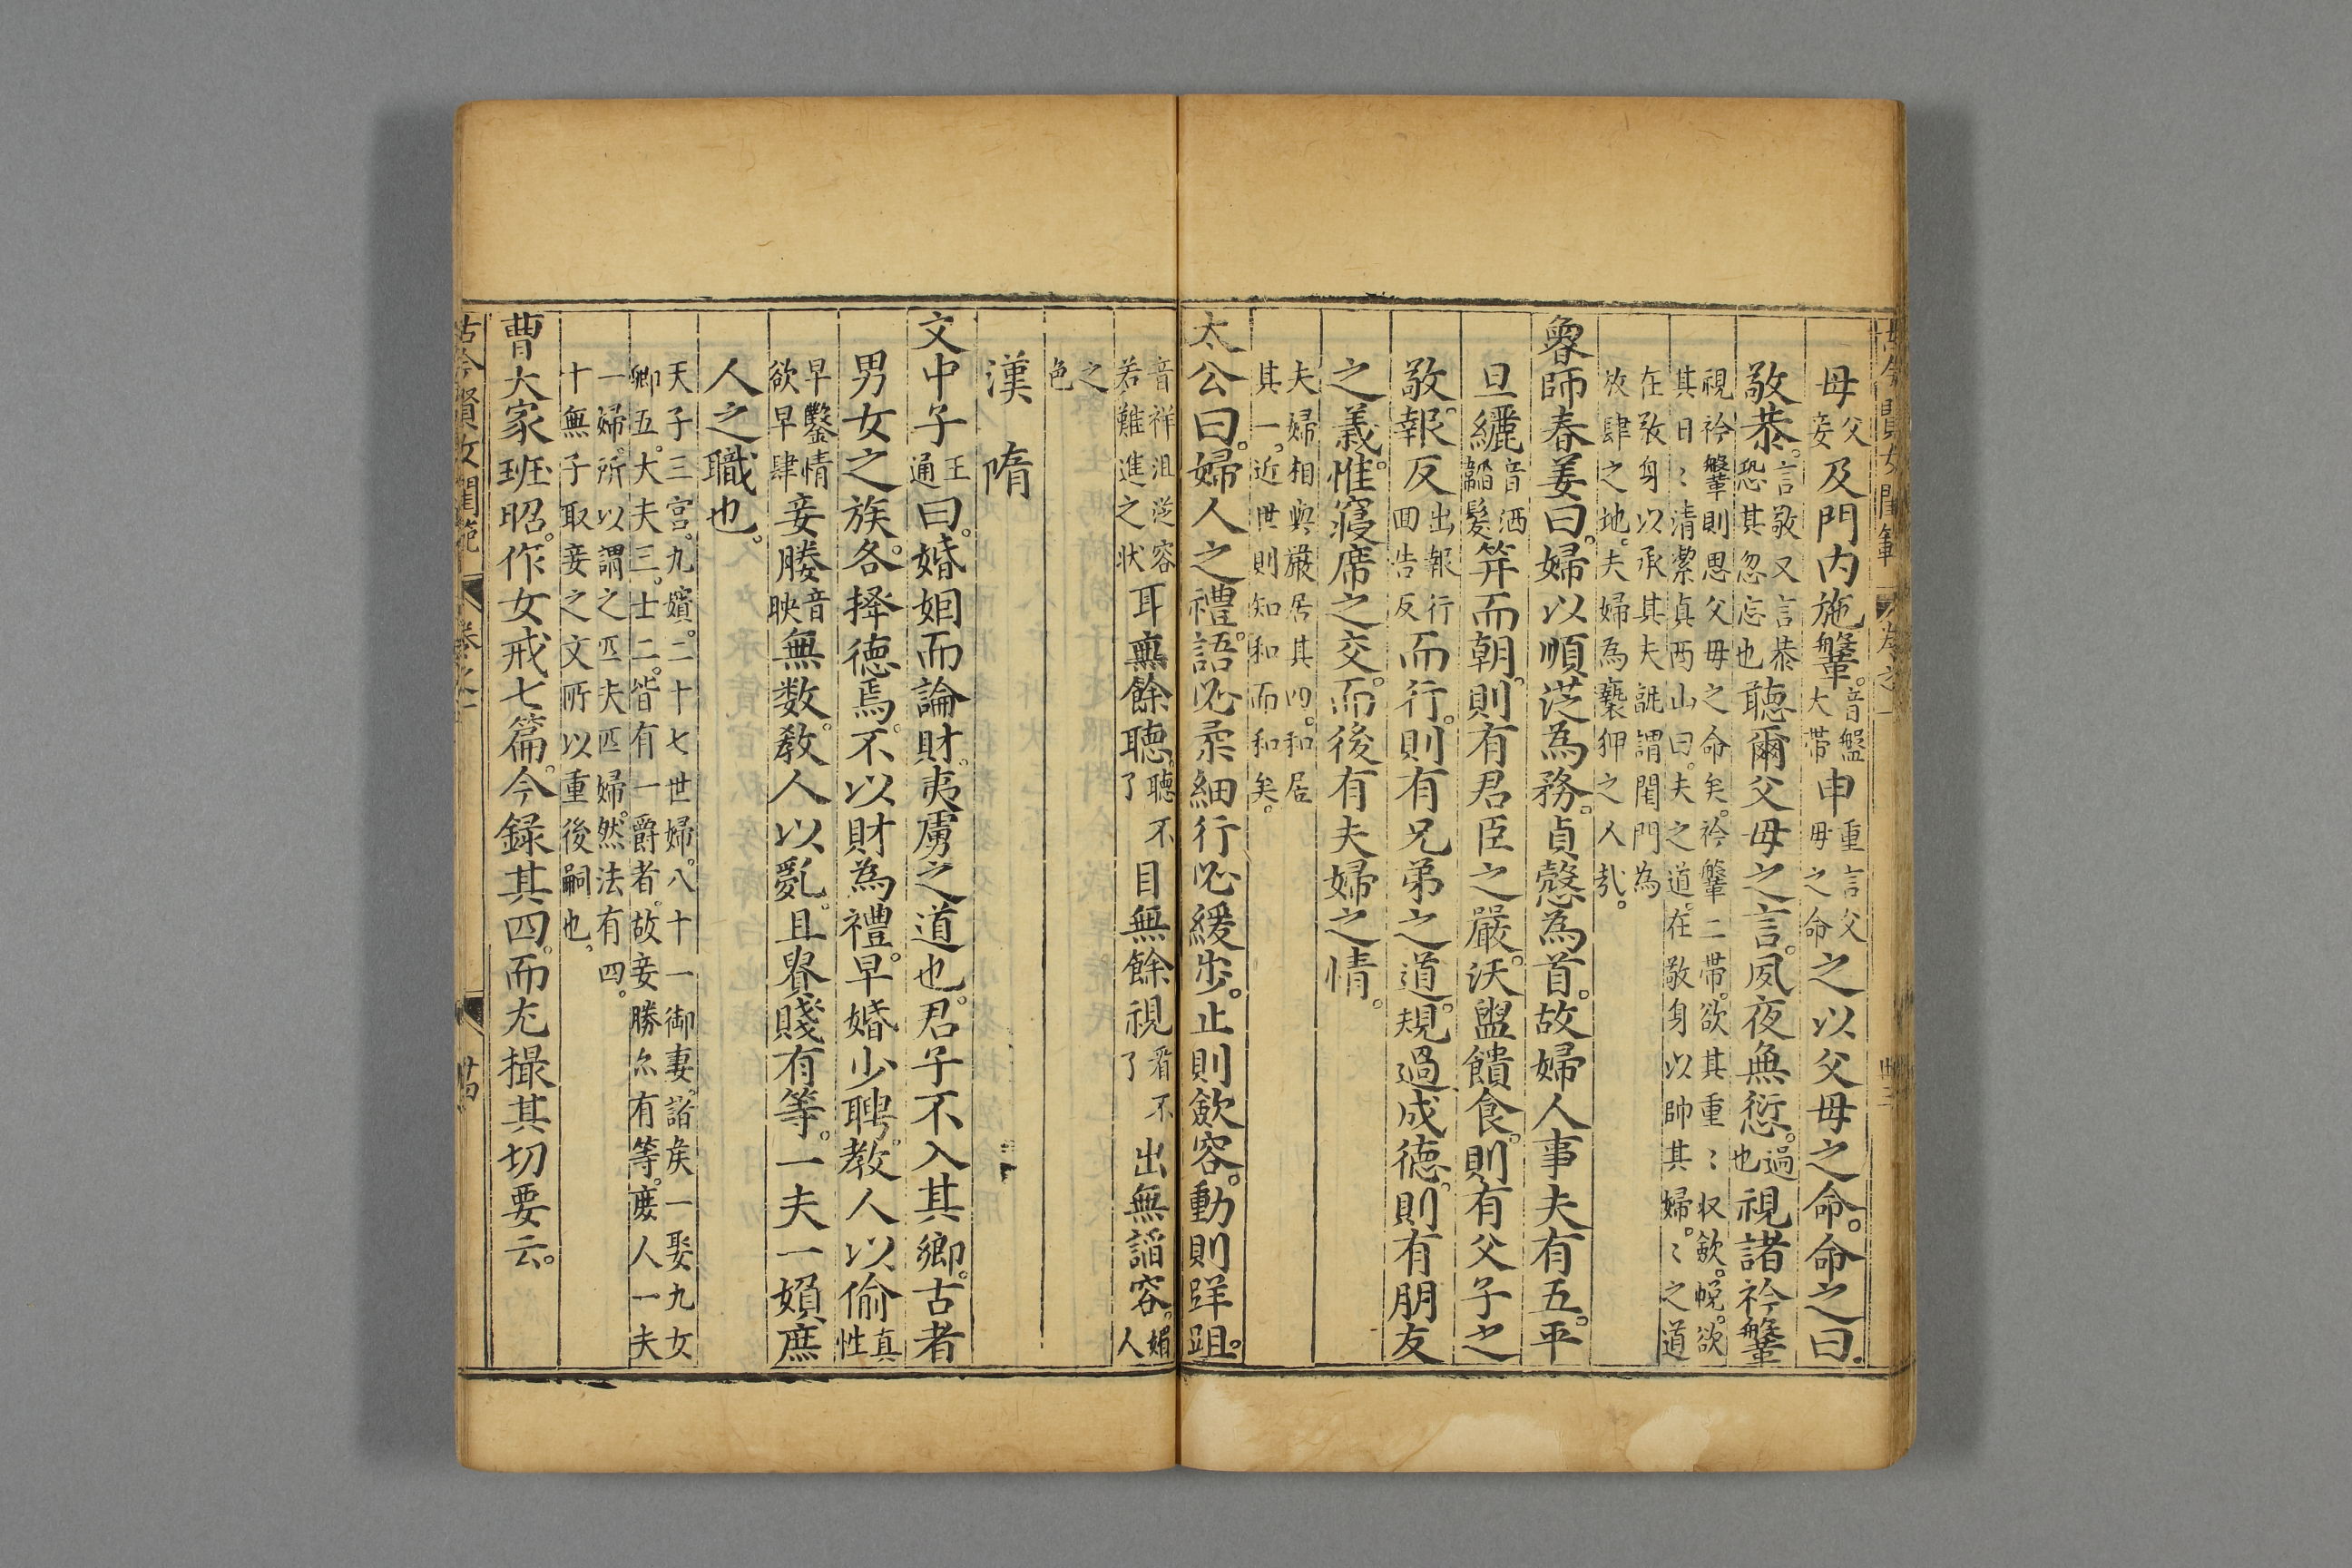 母父妾及門內施鞶。音盤大帶申重言父母之命之以父母之命。命之曰。
敬恭。言敬又言恭恐其忽忘也聽爾父母之言。夙夜無愆。過也視諸衿鞶
視衿鞶則思父母之命矣。衿鞶二帶。欲其重〻収斂。帨。欲
其日〻清潔貞西山曰。夫之道。在敬身以帥其婦。〻之道
在敬身以承其夫誰謂閨門為
放肆之地。夫婦為褻狎之人㢤。
魯師春姜曰。婦以順從為務。貞慤為首。故婦人事夫有五。平
旦纚音洒韜髮笄而朝。則有君臣之嚴。沃盥饋食。則有父子之
敬。報反出報行回告反而行。則有兄弟之道。規過成德。則有朋友
之義。惟寢席之交。而後有夫婦之情。
夫婦相與嚴居其四。和居
其一。近世則知和而和矣。
太公曰。婦人之禮。語必柔細行必緩步。止則斂容。動則跘跙。
音祥沮從容若難進之狀耳無餘聽。聽不了目無餘視看不了出無諂容。媚人
之色
漢 隋
文中子王通曰。婚姻而論財。夷虜之道也。君子不入其鄉。古者
男女之族。各擇德焉。不以財為禮。早婚少聘。教人以偷真性
早鑿情欲早肆妾媵音映無数。教人以亂。且貴賤有等。一夫一婦庶
人之職也。
天子三宮。九嬪。二十七世婦。八十一御妻。諸矦一娶九女
卿五。大夫三。士二。皆有一爵者。故妾勝亦有等。庻人一夫
一婦。所以謂之匹夫匹婦。然法有四。
十無子取妾之文所以重後嗣也。
曹大家班昭。作女戒七篇。今録其四。而尤撮其切要云。
古今賢女閨範 卷之一 廿四